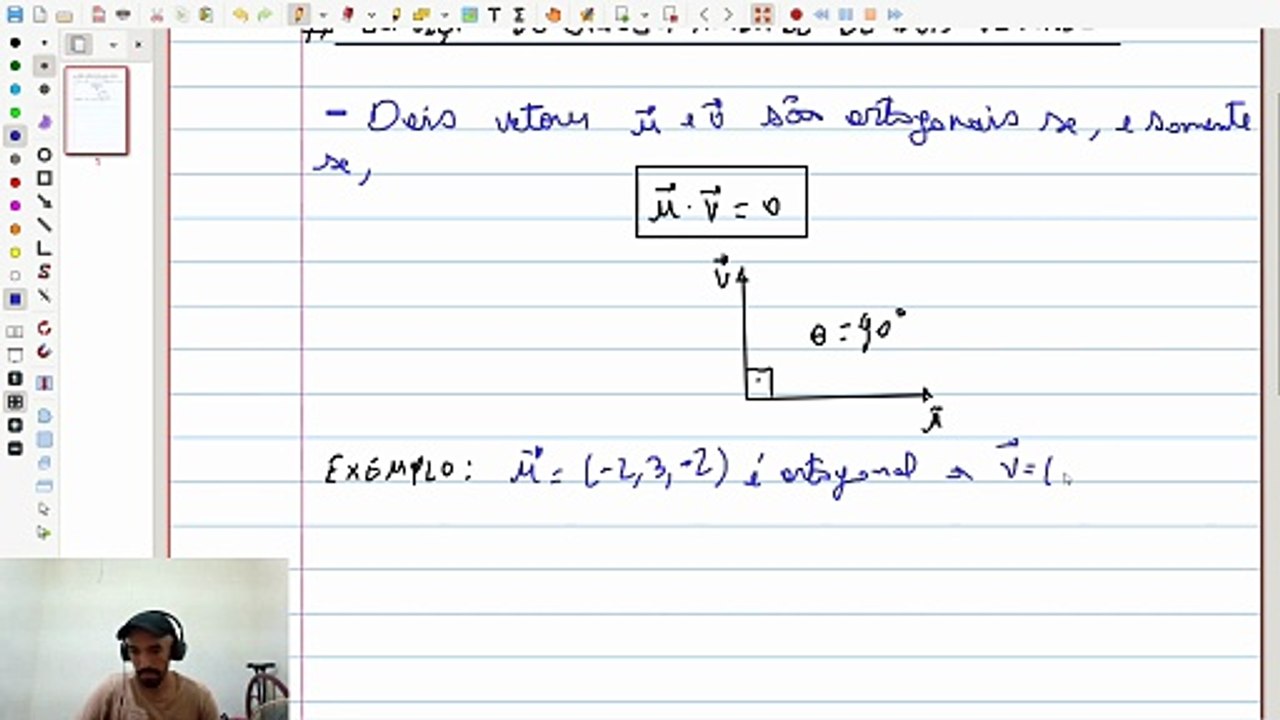 - Dois vetores u⃗ e v⃗ são ortogonais se, e somente
se,
u⃗ · v⃗ = 0
v⃗
θ = 90°
u⃗
EXEMPLO: u⃗ = (-2, 3, -2) é ortogonal a v⃗ = (